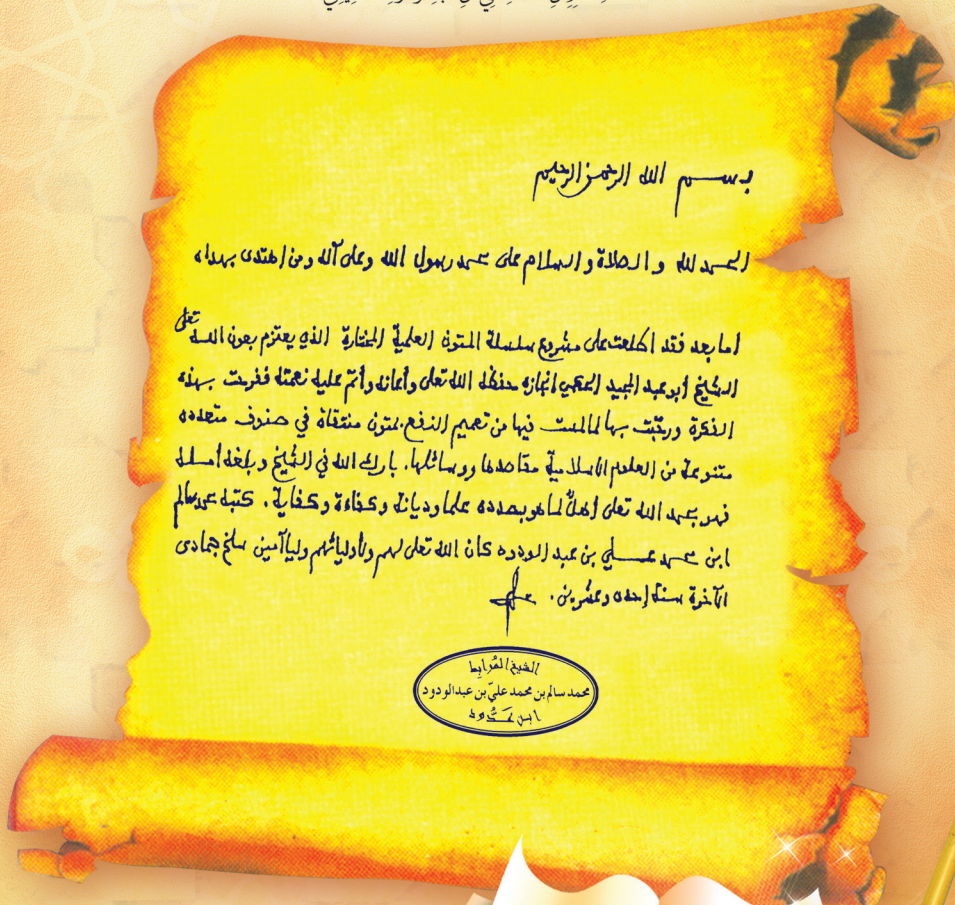 بسم الله الرحمن الرحيم
الحمد لله والصلاة والسلام على محمد رسول الله وعلى آله ومن اهتدى بهداه
أما بعد فقد اطلعت على مشروع سلسلة المتون العلمية المختارة الذي يعتزم بعون الله تعلى
الشيخ أبو عبد المجيد إنجازه حفظه الله تعلى وأعانه وأتم عليه نعمته ففرحت بهذه
الفكرة ورحّبت بها لما لمست فيها من تعميم النفع بمتون منتقاة في صنوف متعدده
متنوعة من العلوم الإسلامية مقاصدها ووسائلها. بارك الله في الشيخ وبلغه أمله
فهو بحمد الله تعلى أهلٌ لما هو بصدده علما وديانة وكفاءة وكفاية. كتبه محمد سالم
ابن محمد علي بن عبد الودود كان الله تعلى لهم ولأوليائهم وليا آمين سلخ جمادى
الآخرة سنة إحدى وعشرين.
الشيخ المُرابِط
محمد سالم بن محمد عليّ بن عبد الودود
ابن عَدُّود